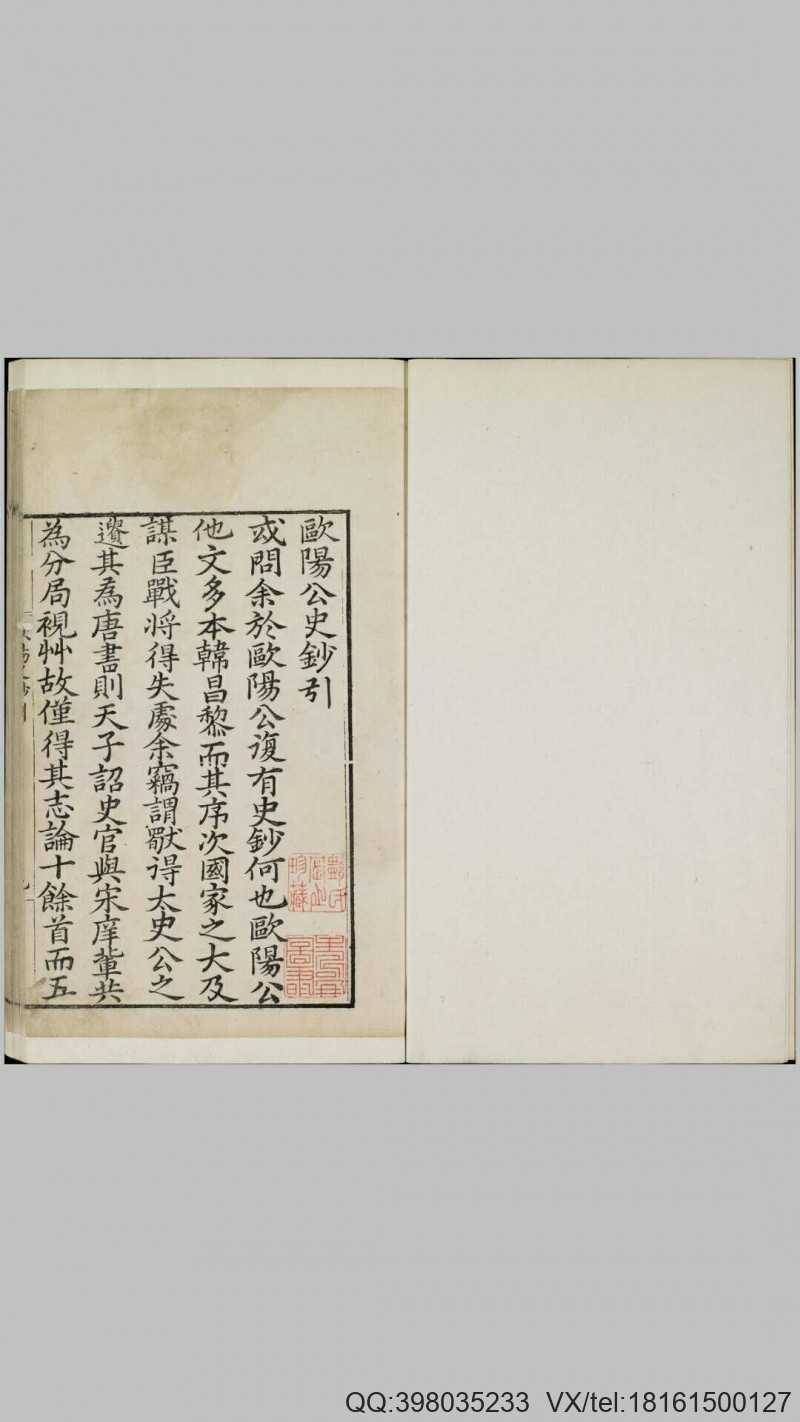 歐陽公史鈔引
或問余於歐陽公復有史鈔何也歐陽公
他文多本韓昌黎而其序次國家之大及
謀臣戰将得失處余竊謂獣得太史公之
遷其為唐書則天子詔史官與宋庠軰共
為分局視艸故僅得其志論十餘首而五
QQ:398035233 VX/tel:18161500127